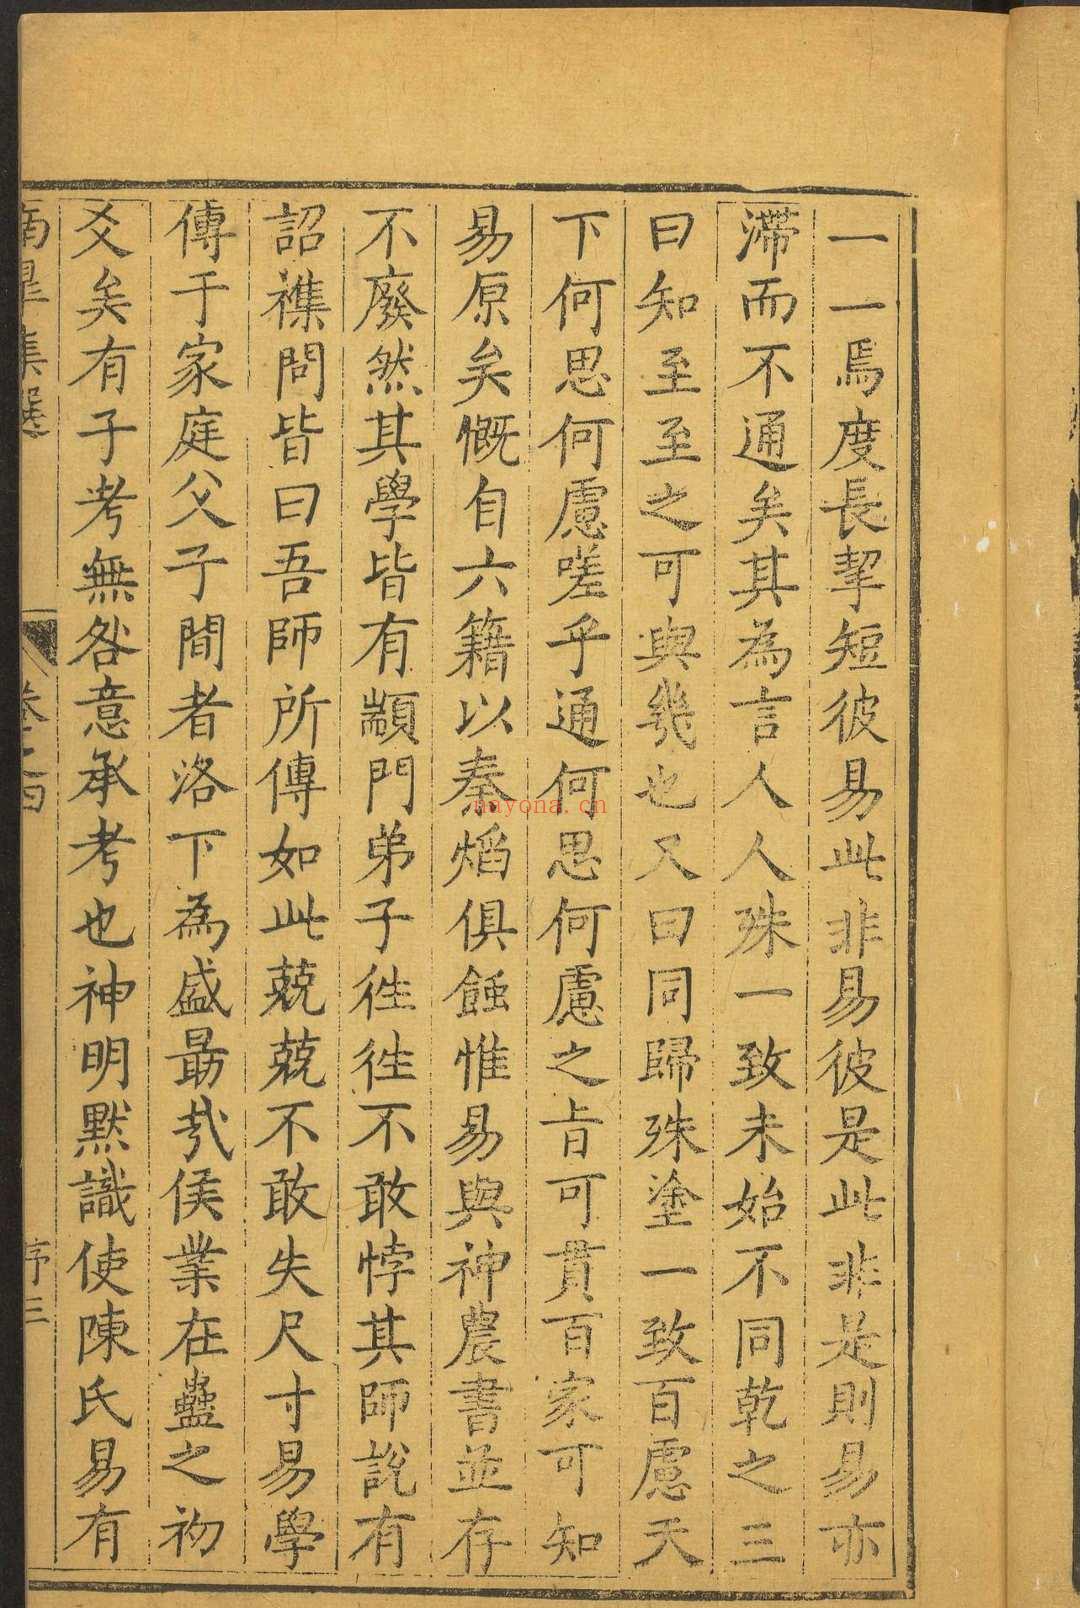 一一焉度長挈短彼易此非易彼是此非是則易亦
滯而不通矣其為言人人殊一致未始不同乾之三
曰知至至之可與幾也又曰同歸殊塗一致百慮天
下何思何慮嗟乎通何思何慮之旨可貫百家可知
易原矣慨自六籍以秦焰俱蝕惟易與神農書並存
不廢然其學皆有顓門弟子徃徃不敢悖其師說有
詔襍問皆曰吾師所傳如此兢兢不敢失尺寸易學
傳于家庭父子間者洛下為盛最哉侯業在蠱之初
爻矣有子考無咎意承考也神明默識使陳氏易有
南星集選
卷之四
序三
nayona.cn